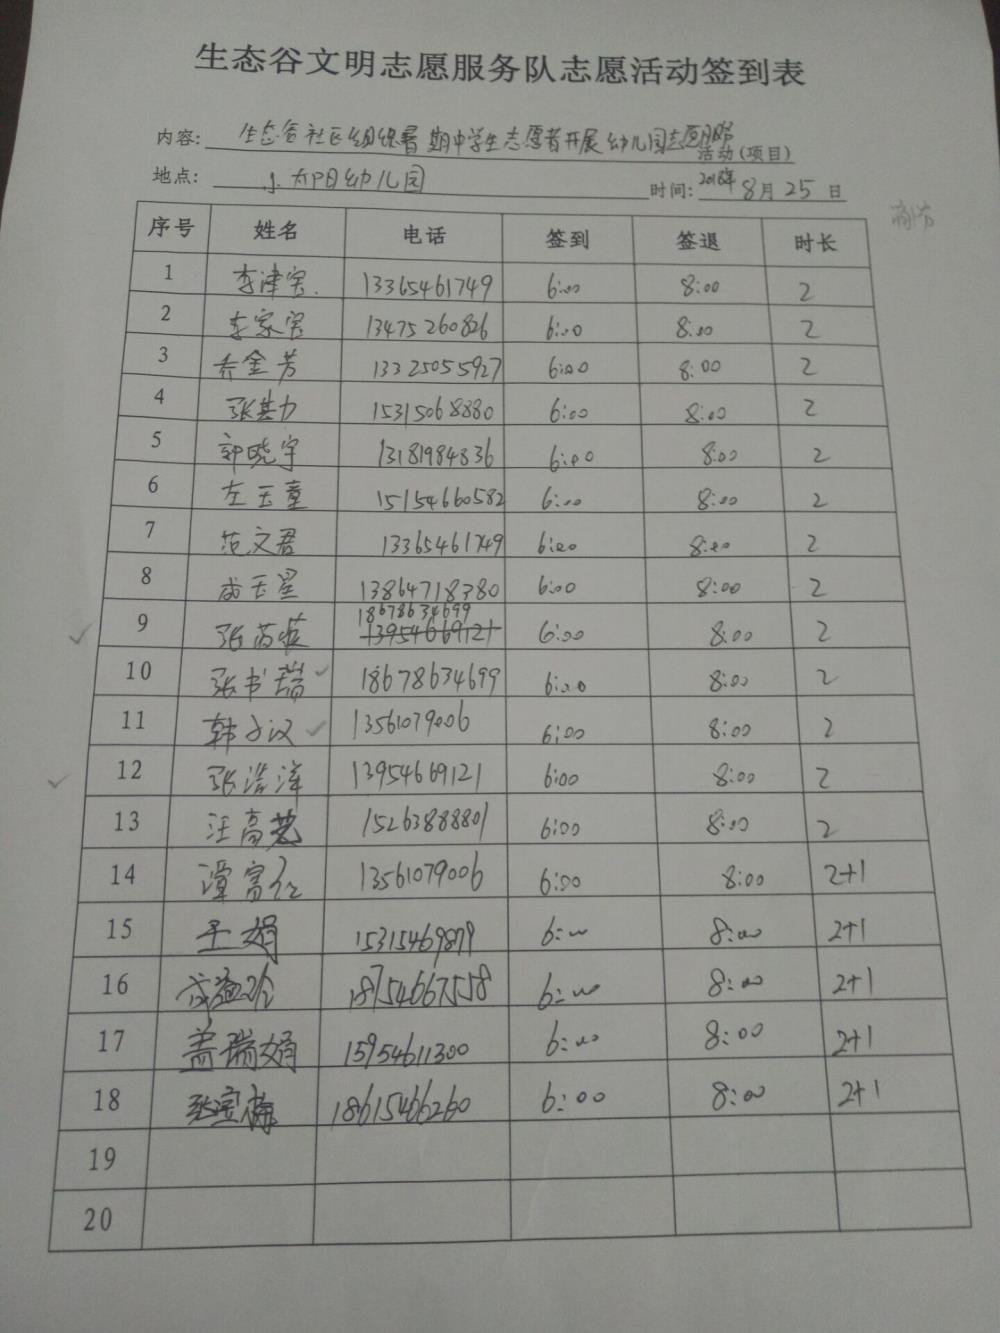 生态谷文明志愿服务队志愿活动签到表
内容: 生态谷社区组织暑期中学生志愿者开展幼儿园志愿服务
活动(项目)
地点: 小太阳幼儿园 时间: 2018年8月25日
序号 姓名 电话 签到 签退 时长
1 李津宝 13365461749 6:00 8:00 2
2 李家宝 13475260826 6:00 8:00 2
3 乔金芳 13325055927 6:00 8:00 2
4 张其力 15315068880 6:00 8:00 2
5 郭晓宇 13181984836 6:00 8:00 2
6 左玉童 15154660582 6:00 8:00 2
7 范文君 13365461749 6:00 8:00 2
8 成玉星 13864718380 6:00 8:00 2
9 张芮 18678634699 13954669121 6:00 8:00 2
10 张书瑞 18678634699 6:00 8:00 2
11 韩子汉 13561079006 6:00 8:00 2
12 张浩洋 13954669121 6:00 8:00 2
13 汪高 15263888801 6:00 8:00 2
14 潭富仁 13561079006 6:00 8:00 2+1
15 王娟 15315469879 6:00 8:00 2+1
16 18754667558 6:00 8:00 2+1
17 盖瑞娟 15954611300 6:00 8:00 2+1
18 张宝栋 18615466260 6:00 8:00 2+1
19
20